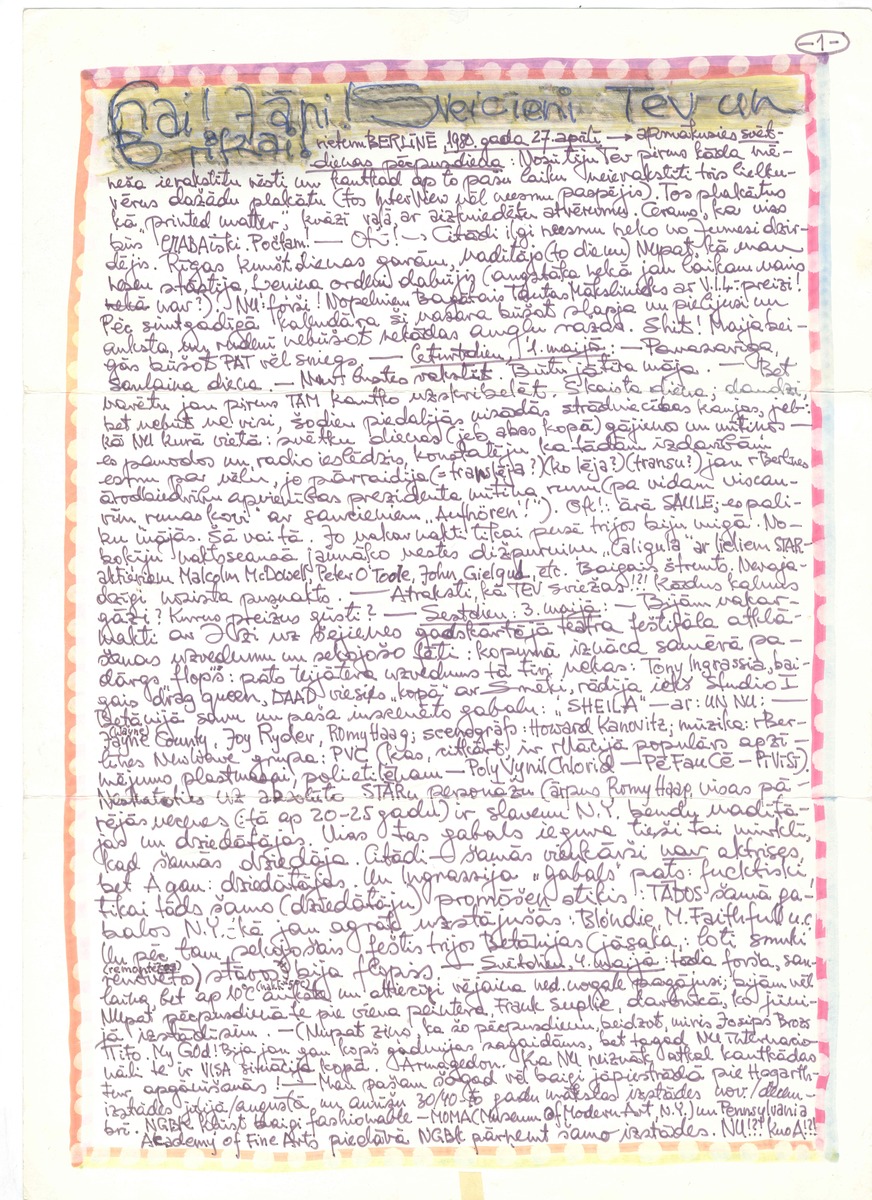 -1-
Čai! Jāņi! Sveicieni Tev un
Birkai!
rietumBERLĪNĒ, 1980. gada 27. aprīlī → apmākušies svēt-
dienas pēcpusdiena: Nosūtīju Tev pirms kāda mē-
neša ierakstītu vēsti un kautkad ap to pašu laiku neierakstīti trīs lielku-
vērus dažādu plakātu (tos InterView vēl neesmu paspējis). Tos plakātus
kā "printed matter", kvāzi vaļā ar aizkniedētu atvērumu. Ceramo, ka viss
būs labi. Počtam. — Oh! → Citādi ilgi neesmu neko no Jumsesi dzir-
dējis. Rīgas kunstdienas garām, vadītājs (to dienu) Nupat, kā man
nesen stāstīja, Ļeņina ordeni dabūjis (augstāka nekā jau laikam nav
nav?). NU: forši! Nopelniem Bagātais Tautas Mākslinieks ar V.I.L.-preizi!
Pēc simtgadīgā kalendāra šī vasara būšot slapja un pieliusi un
auksta, un rudenī nebūšot nekādas augļu ražas. Shit! Maija bei-
gās būšot PAT vēl sniegs. — Ceturtdien, 1. maijā: — Pavasarīga,
saulaina diena. — Nav šoties rakstīt. Būtu jātīra māja. — Bet
varētu jau pirms TAM kautko uzskribelēt. Skaista diena, daudzi,
bet nebūt ne visi, šodien piedalījās visādās strādniecības kaujas, jeb:
kā NU kurā vietā: svētku dienas (jeb abas kopā) gājienos un mītiņos —
es pamodos un, radio ieslēdzis, konstatēju, ka tādām izdarībām
esmu par vēlu, jo pārraidīja (= translēja?) (ko lēja?) (transu?) jau rBerlīnes
arodbiedrību apvienības prezidenta mītiņa runu (pa vidam viscau-
rīm runas korī ar saucieniem "Aufhören!"). Oh!: ārā SAULE; es pali-
ku mājās. Šā vai tā. Jo vakar naktī tikai pusē trijos biju migā. No-
bokīju naktsseansā jaunāko vestes dižpurninu "Caligula" ar lieliem STAR-
aktieriem Malcolm McDowell, Peter O'Toole, John Gielgud, etc. Baigais štrunts. Nevaja-
dzīgi izsista pusnakts. — Atraksti, kā TEV sviežas!?! Kādus kalnus
gāzi? Kurus preizus gūsti? — Sestdien: 3. maijā: — Bijām vakar-
naktī ar Ilzi uz šejienes gadskārtējā teātra festivāla atklā-
šanas uzvedumu un sekojošo fēti: kopumā iznāca samērā pa-
dārgs flops: pats teijātera uzvedums tā fui nekas: Tony Ingrassia, bai-
gais drag queen, DAAD viesis "kopā" ar Smēķi, rādīja iekš Studio I
Betānijā savu un paša inscenēto gabalu: "SHEILA" — ar: UN NU: —
(Wayne) Jayne County, Joy Ryder, Romy Haag; scenogrāfs: Howard Kanovitz; mūzika: rBer-
līnes NewWave grupa: PVC (kas, citkārt, ir rVācijā populārs apzī-
mējums plastmasai, polietilēnam — PolyVynilChlorid — PēFauCē — PiViSi).
Neskatoties uz absolūto STARu personāžu (ārpus Romy Haag, visas pā-
rējās večenes (tā ap 20-25 gadu) ir slavenu N.Y. bendu vadītā-
jas un dziedātājas. Viss tas gabals ieguva tieši tai mirklī,
kad šamās dziedāja. Citādi — šamās vienkārši nav aktrises,
bet A gan: dziedātājas. Un Ingrassija "gabals" pats: fucktiski
tikai tāds šamo (dziedātāju) promōšen štiks. TĀDOS šamā ga-
balos N.Y. - kā jau agrāk uzstājušās: Blondie, M. Faithfull u.c.
Un pēc tam sekojošais fēstis trijos Betānijas (jāsaka: ļoti smuki
(remontētos) renovēto) stāvos bija flopiss. — Svētdien, 4. maijā: tāda forša, sau-
laina, bet ap 10°C (naktīs 5°C) auksta un attiecīgi vējaina ned. nogale pagājusi; bijām vēl
Nupat, pēcpusdienā te pie viena peintera, Frank Suplie, darbnīcā, ko jūni-
jā izstādīsim. — (Nupat ziņo, ka šo pēcpusdienu, beidzot, miris Josips Brozs
Tito. My God! Bija jau gan kopš gadumijas sagaidāms, bet tagad NU internacio-
nāli te ir VISA situācija kopā. Armagedon. Ka NU neiznāk atkal kautkādas
apgānīšanās! — Man pašam šogad vēl baigi jāpiestrādā pie Hogarth-
izstādes jūlijā/augustā un amīzu 30/40-to gadu mākslas izstādes nov./decem-
brī. NGBK kļūst baigi fashionable — MOMA (Museum of Modern Art N.Y.) un Pennsylvania
Academy of Fine Arts piedāvā NGBK pārņemt šamo izstādes. NU!?! KUO A!?!